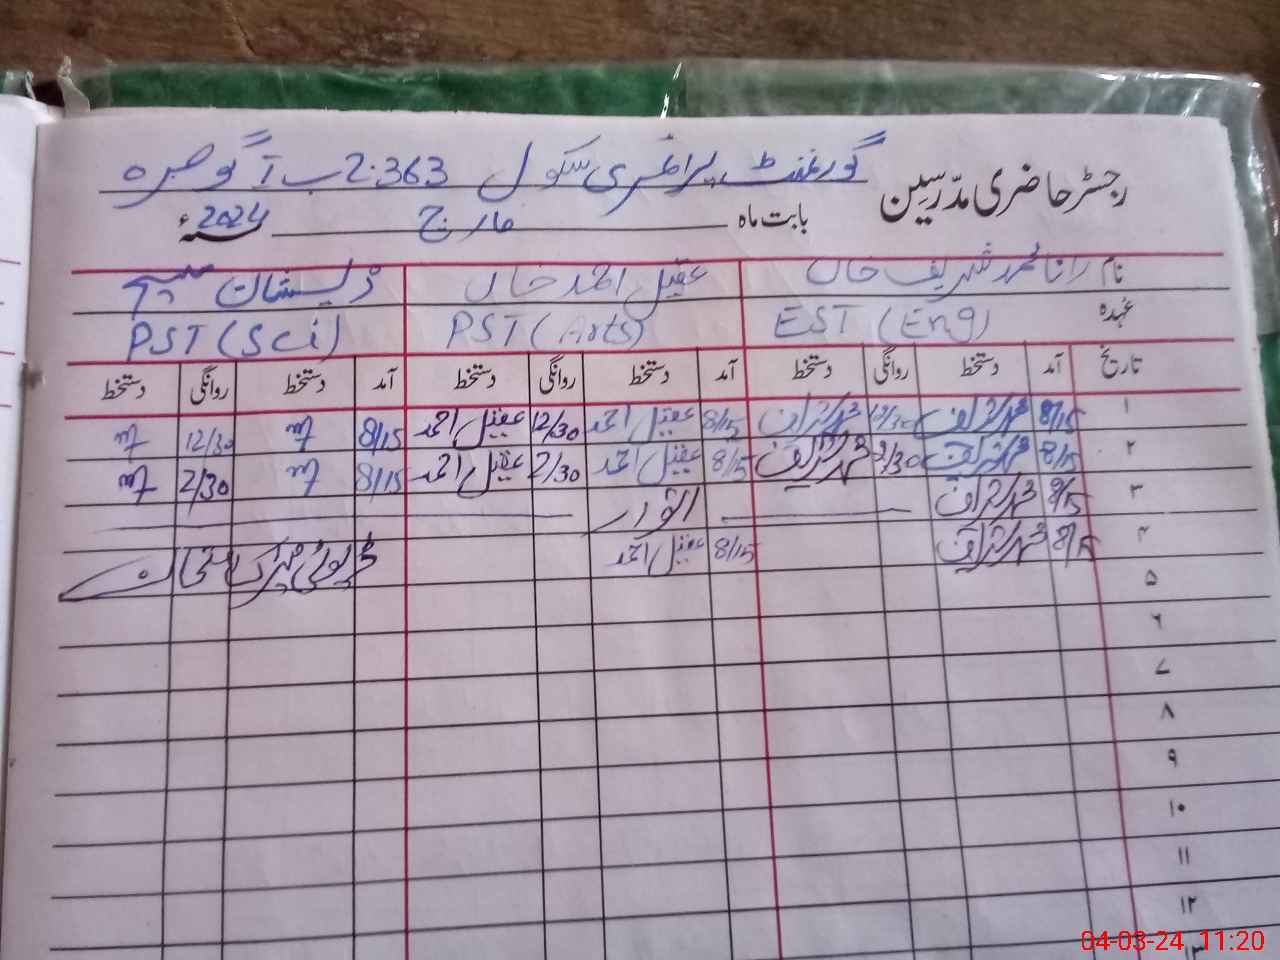 رجسٹر حاضری مدّرسین گورنمنٹ پرائمری سکول 363-2 ج ب گوجرہ
بابت ماہ مارچ 2024 سنہء
نام رانا محمد شریف خاں عقیل احمد خاں ذیشان
عہدہ EST (Eng) PST (Arts) PST (Sci)
تاریخ آمد دستخط روانگی دستخط آمد دستخط روانگی دستخط آمد دستخط روانگی دستخط
۱ 8/15 محمد شریف 12/30 محمد شریف 8/15 عقیل احمد 12/30 عقیل احمد 8/15 12/30
۲ 8/15 محمد شریف 2/30 محمد شریف 8/15 عقیل احمد 2/30 عقیل احمد 8/15 2/30
۳ 8/15 محمد شریف اتوار
۴ 8/15 محمد شریف 8/15 عقیل احمد
۵
۶
۷
۸
۹
۱۰
۱۱
۱۲
۱۳
04-03-24 11:20